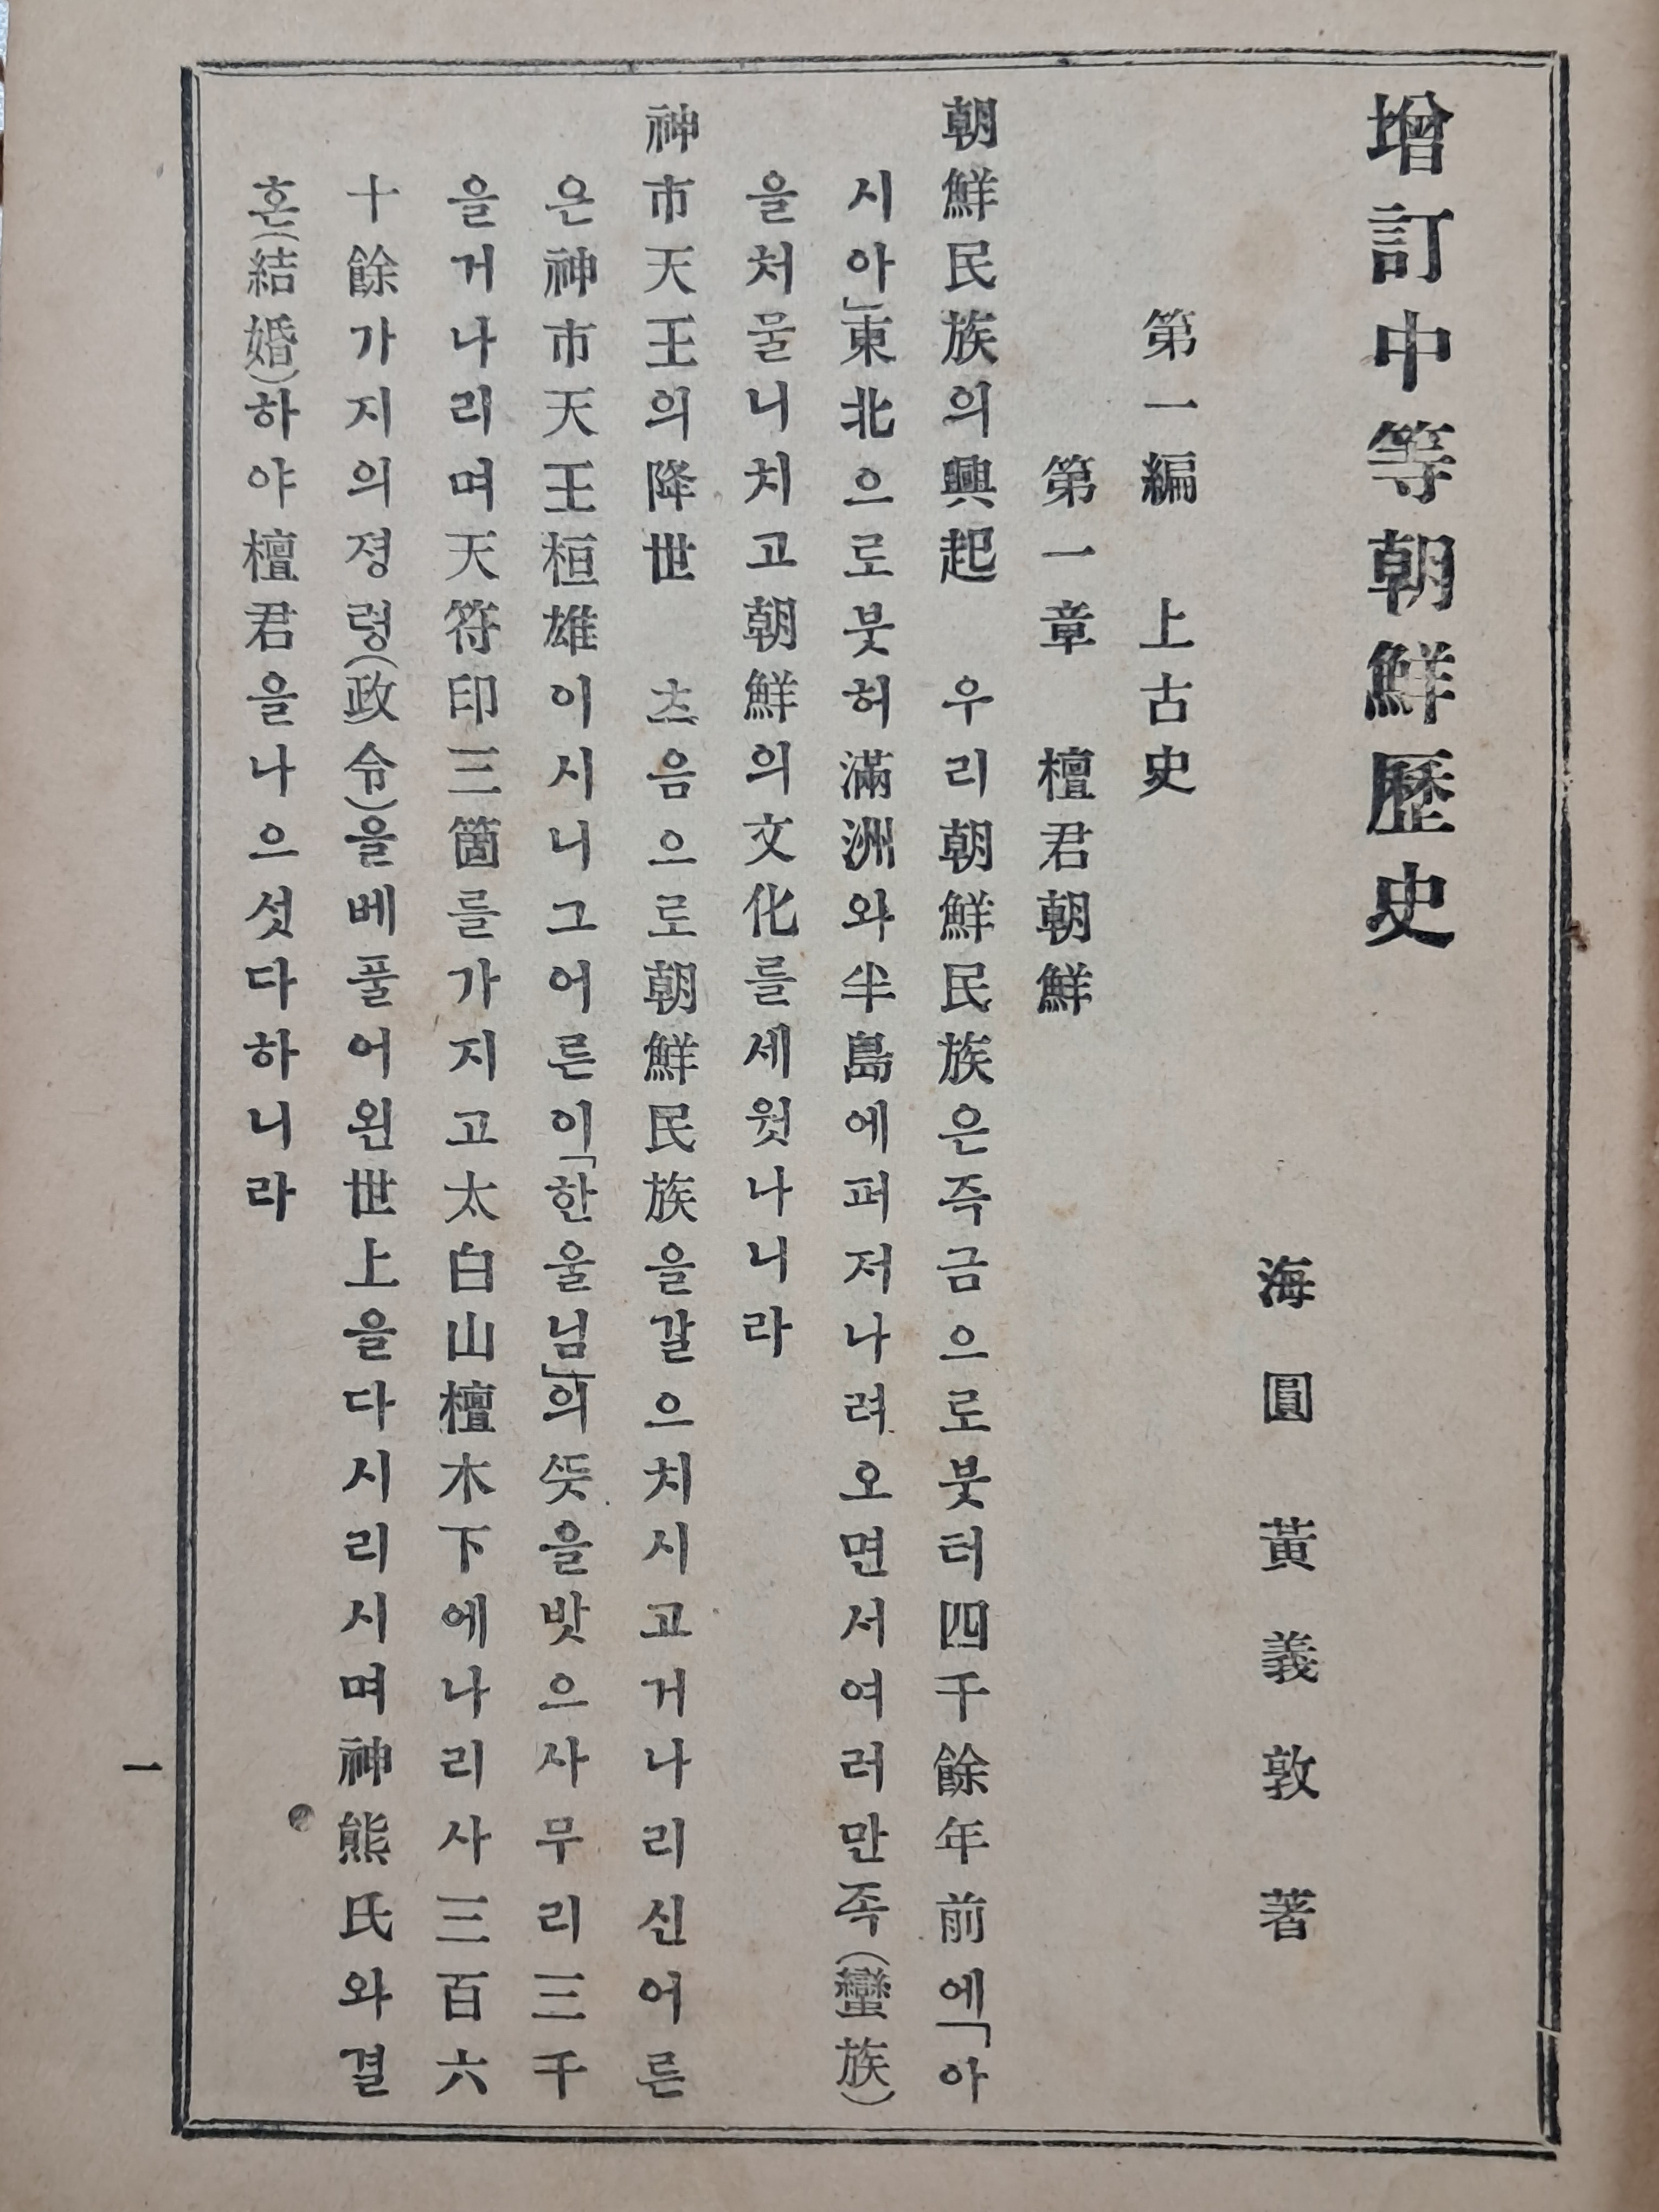 增訂中等朝鮮歷史
海圓 黃義敦 著
第一編 上古史
第一章 檀君朝鮮
朝鮮民族의興起 우리朝鮮民族은즉금으로붓터四千餘年前에「아
시아」東北으로붓허滿洲와半島에퍼저나려오면서여러만족(蠻族)
을처물니치고朝鮮의文化를세웟나니라
神市天王의降世 츠음으로朝鮮民族을갈으치시고거나리신어른
은神市天王桓雄이시니그어른이「한울님」의뜻을밧으사무리三千
을거나리며天符印三箇를가지고太白山檀木下에나리사三百六
十餘가지의졍령(政令)을베풀어왼世上을다시리시며神熊氏와결
혼(結婚)하야檀君을나으섯다하니라
一